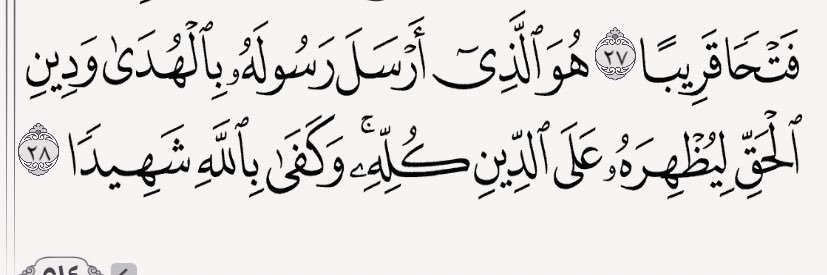 فَتۡحٗا قَرِيبًا ٢٧ هُوَ ٱلَّذِيٓ أَرۡسَلَ رَسُولَهُۥ بِٱلۡهُدَىٰ وَدِينِ
ٱلۡحَقِّ لِيُظۡهِرَهُۥ عَلَى ٱلدِّينِ كُلِّهِۦۚ وَكَفَىٰ بِٱللَّهِ شَهِيدٗا ٢٨
٥١٤